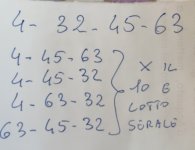 4- 32-45-63
4-45-63
4-45-32 X IL
4-63-32 10 E
63-45-32 LOTTO
SERALE